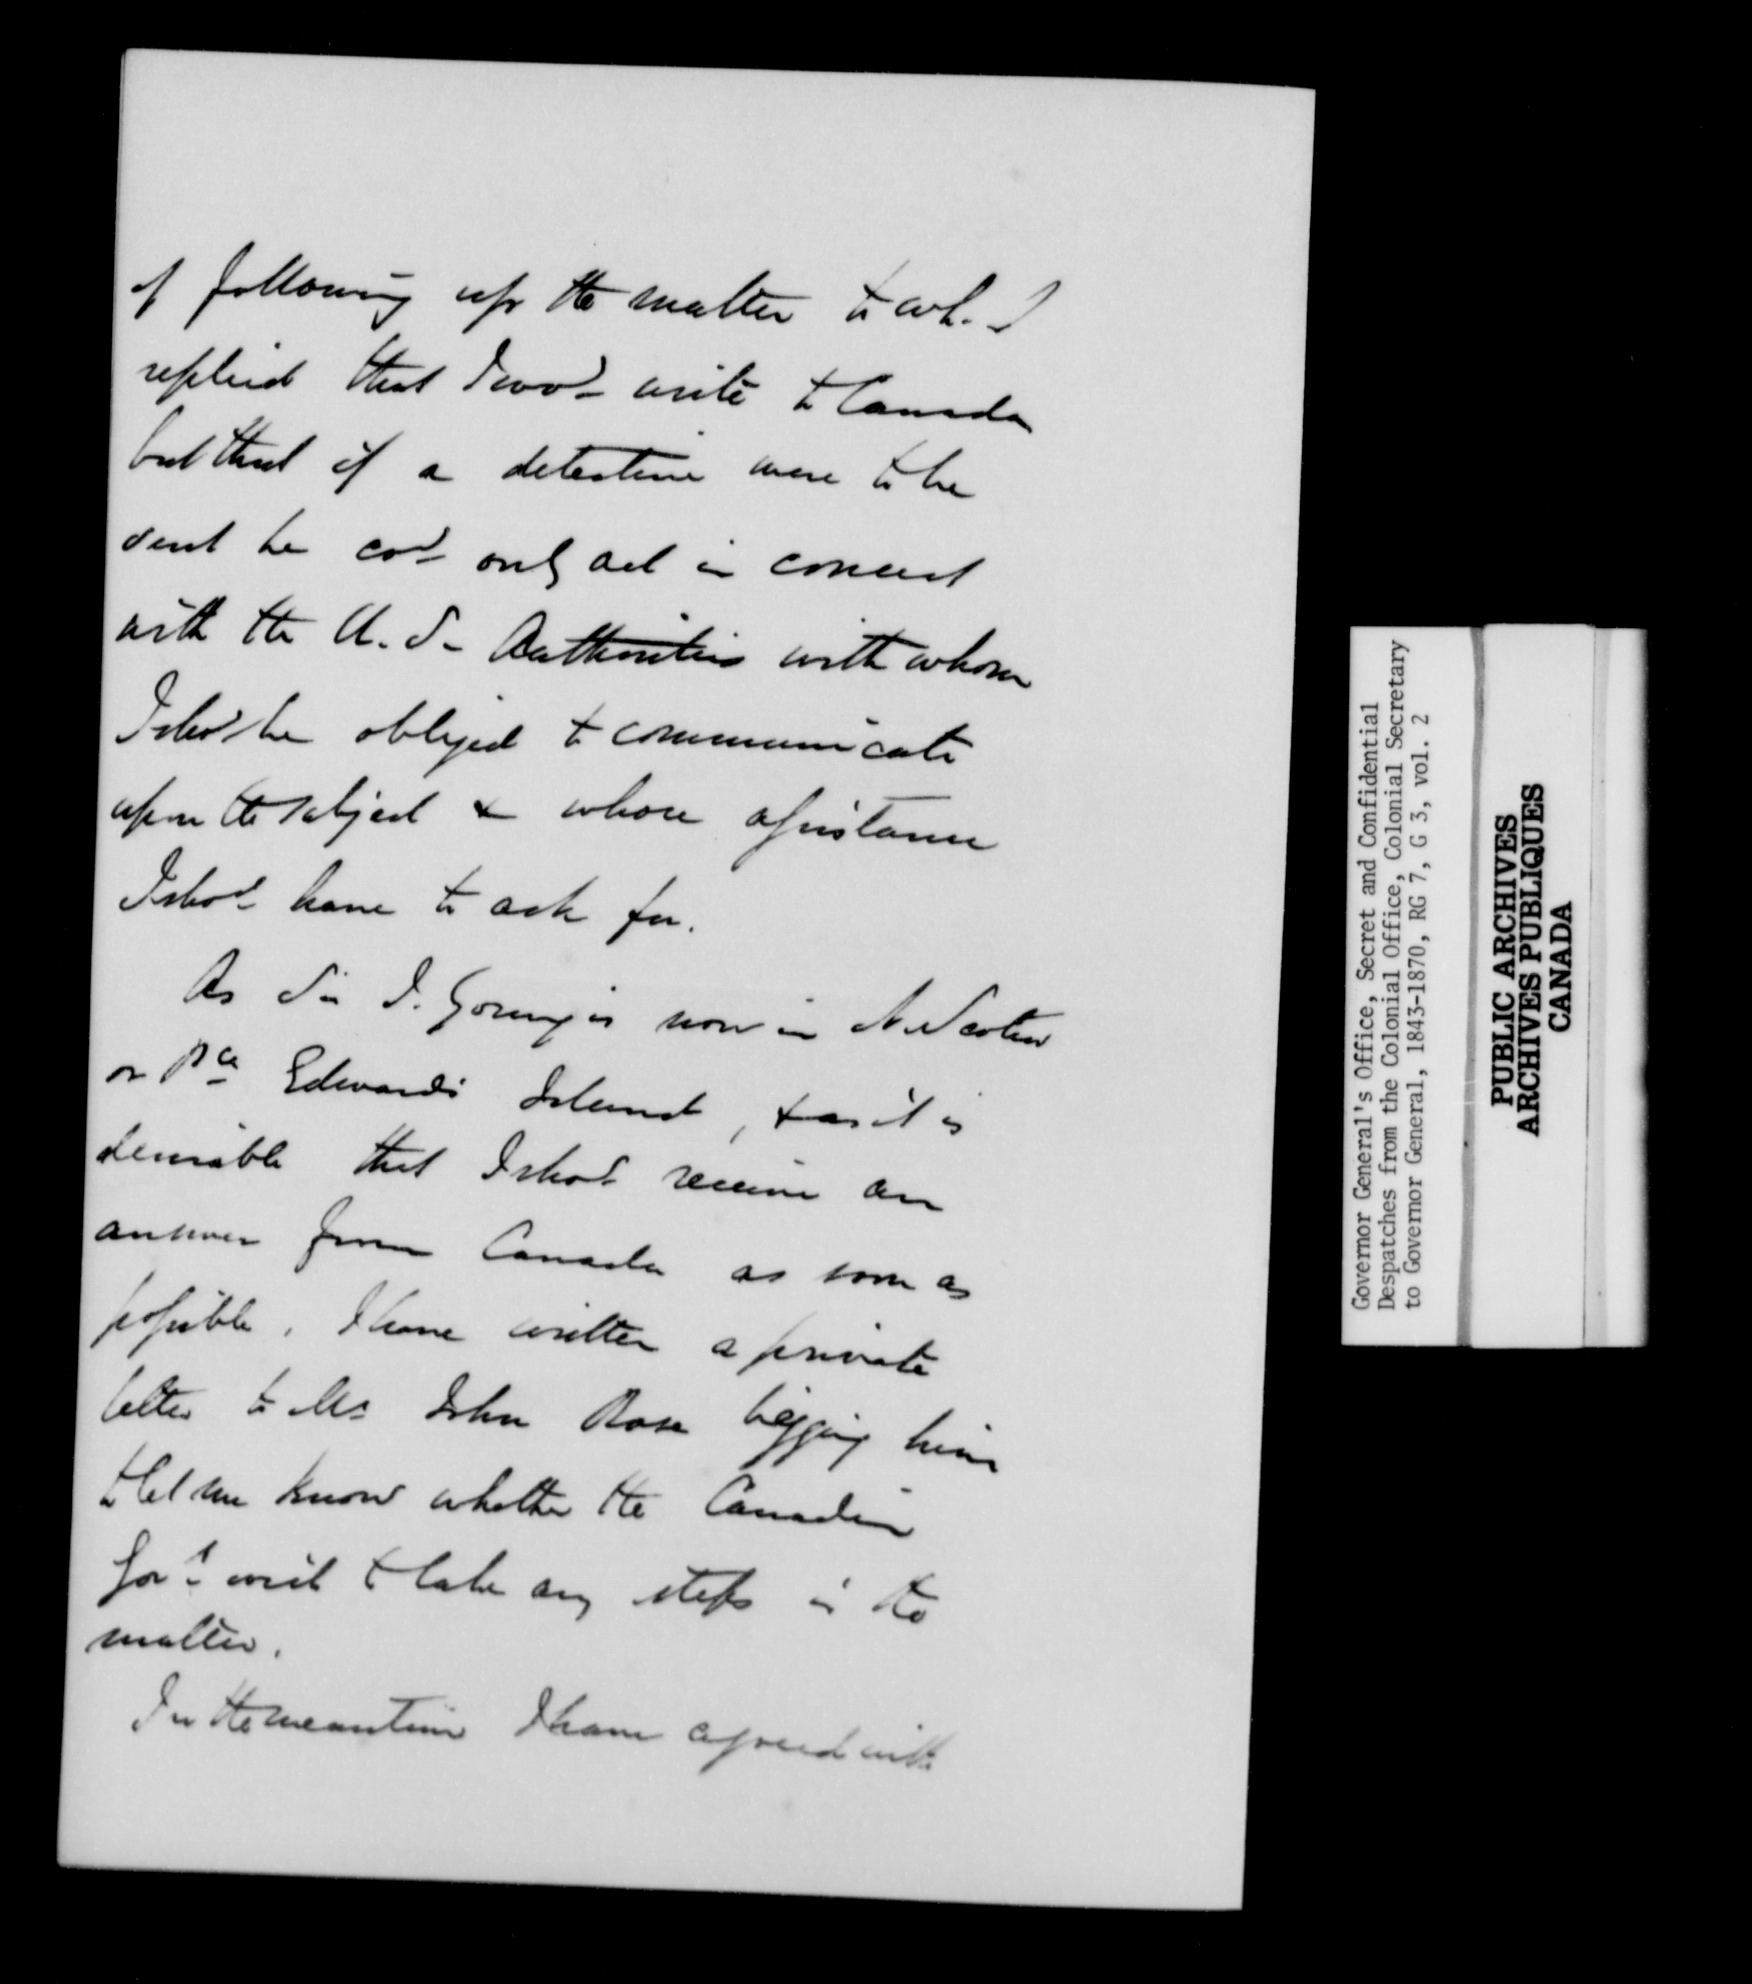 of following up the matter to wh. I
replied that I wod write to Canada
but that if a detective were to be
sent he cod only act in concert
with the U.S. Authorities with whom
I shod be obliged to communicate
upon the subject & whose assistance
I shod have to ask for.
As Sir J. Young is now in N. Scotia
or Pce Edwards Island, & as it is
desirable that I shod receive an
answer from Canada as soon as
possible, I have written a private
letter to Mr John Rose begging him
to let me know whether the Canadian
Govt wish to take any steps in the
matter.
In the meantime I have agreed with
Governor General's Office, Secret and Confidential
Despatches from the Colonial Office, Colonial Secretary
to Governor General, 1843-1870, RG 7, G 3, vol. 2
PUBLIC ARCHIVES
ARCHIVES PUBLIQUES
CANADA